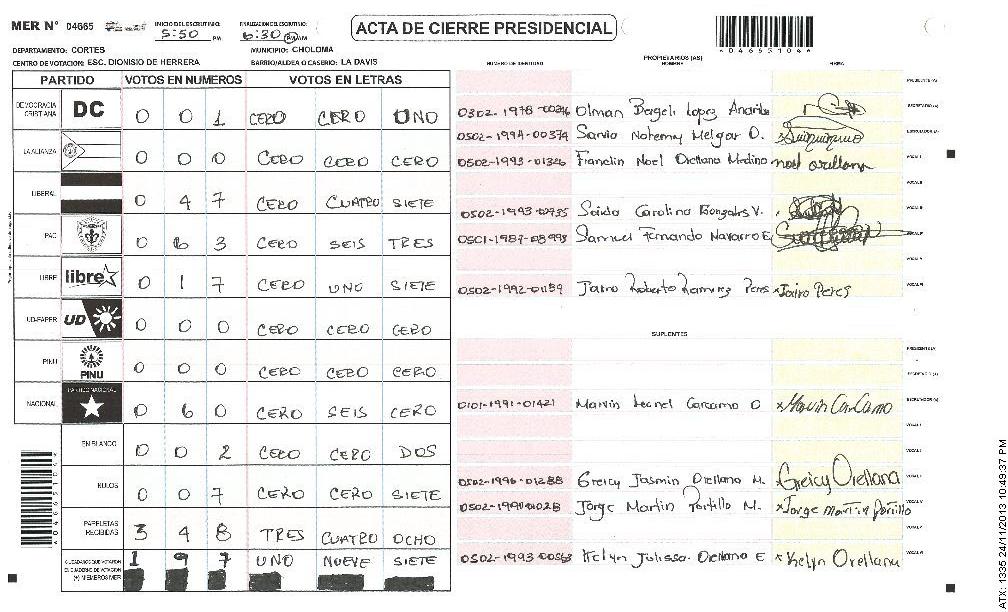 MER N° 04665
INICIO DEL ESCRUTINIO: 5:50 PM
FINALIZACION DEL ESCRUTINIO: 6:30 PM AM
ACTA DE CIERRE PRESIDENCIAL
DEPARTAMENTO: CORTES
MUNICIPIO: CHOLOMA
CENTRO DE VOTACION: ESC. DIONISIO DE HERRERA
BARRIO/ALDEA O CASERIO: LA DAVIS
PARTIDO VOTOS EN NUMEROS VOTOS EN LETRAS
DEMOCRACIA CRISTIANA DC 0 0 1 CERO CERO UNO
LA ALIANZA 0 0 0 CERO CERO CERO
LIBERAL 0 4 7 CERO CUATRO SIETE
PAC 0 6 3 CERO SEIS TRES
LIBRE libre 0 1 7 CERO UNO SIETE
UD-FAPER UD 0 0 0 CERO CERO CERO
PINU PINU 0 0 0 CERO CERO CERO
NACIONAL PARTIDO NACIONAL 0 6 0 CERO SEIS CERO
EN BLANCO 0 0 2 CERO CERO DOS
NULOS 0 0 7 CERO CERO SIETE
PAPELETAS RECIBIDAS 3 4 8 TRES CUATRO OCHO
CIUDADANOS QUE VOTARON EN CUADERNO DE VOTACION (+) MIEMBROS MER 1 9 7 UNO NUEVE SIETE
NUMERO DE IDENTIDAD
PROPIETARIOS (AS)
NOMBRE
FIRMA
PRESIDENTE (A)
Olman Bergeli Lopez SECRETARIO (A)
0502-1994-00374 Nohemy Melgar O. ESCRUTADOR (A)
0502-1993-01326 Franclin Noel Orellana Medino noel orellana VOCAL I
VOCAL II
0502-1993-02735 Saida Carolina Gonzales V. VOCAL III
Samuel Fernando Navarro E VOCAL IV
VOCAL V
0502-1992-01159 Jairo Roberto Ramirez Peres Jairo Peres VOCAL VI
SUPLENTES
PRESIDENTE (A)
SECRETARIO (A)
0101-1991-01421 Marvin Leonel Carcamo O Marvin Carcamo ESCRUTADOR (A)
VOCAL I
VOCAL II
0502-1996-01288 Greicy Jasmin Orellana M. Greicy Orellana VOCAL III
Jorge Martin Portillo M. Jorge Martin Portillo
0502-1993-00563 Kelyn Julissa Orellana E Kelyn Orellana VOCAL VI
ATX: 1335 24/11/2013 10:49:37 PM